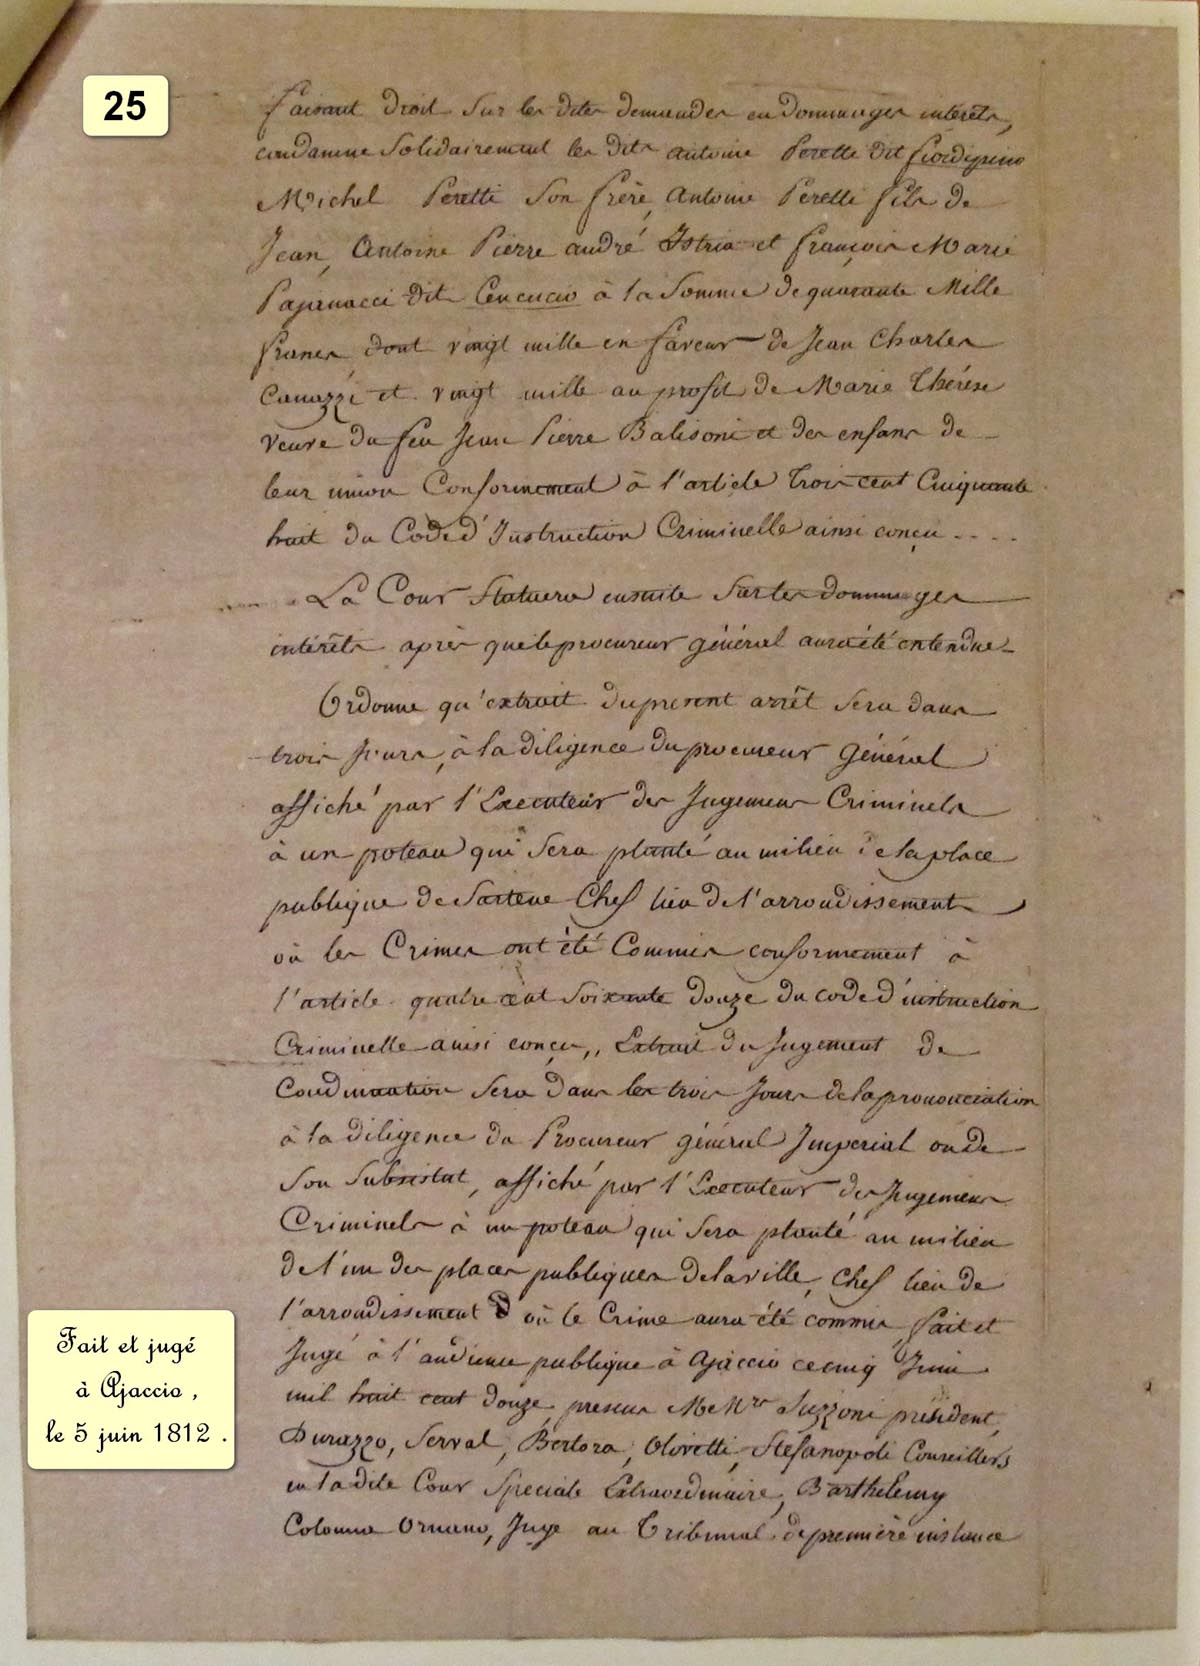 25
faisant droit sur les dites demandes en dommages interêts,
condamne solidairement les dits Antoine Peretti dit fiordispino
Michel Peretti son frère, Antoine Peretti fils de
Jean, Antoine Pierre andré Istria et françois Marie
Pajanacci dit Cencucio à la Somme de quarante Mille
francs, dont vingt mille en faveur de Jean Charles
Canazzi et vingt mille au profit de Marie Thérèse
veuve du feu Jean Pierre Balisoni et des enfans de
leur union Conformement à l'article trois cent Cinquante
huit du Code d'Instruction Criminelle ainsi conçu - - - -
La Cour Statuera ensuite sur les dommages
intérêts après que le procureur général aura été entendue -
Ordonne qu'extrait du present arrêt sera dans
trois Jours, à la diligence du procureur Général
affiché par l'Executeur des Jugemens Criminels
à un poteau qui sera planté au milieu de la place
publique de Sartene Chef lieu de l'arrondissement
où les Crimes ont été Commis conformement à
l'article quatre cent soixante douze du code d'instruction
Criminelle ainsi conçu,, Extrait du Jugement de
Condmnation sera dans les trois Jours de la prononciation
à la diligence du Procureur général Imperial ou de
son Substitut, affiché par l'Executeur des Jugemens
Criminels à un poteau qui sera planté au milieu
de l'un des places publiques de la ville, Chef lieu de
l'arrondissement où le Crime aura été commis, fait et
Jugé à l'audience publique à Ajaccio ce cinq Juin
mil huit cent douze presens MeMrs Suzzoni président,
Durazzo, Serval, Bertora, Olivetti, Stefanopoli Conseillers
en la dite Cour Speciale Extraordinaire, Barthelemy
Colonna Ornano, Juge au Tribunal de première instance
Fait et jugé
à Ajaccio ,
le 5 juin 1812 .